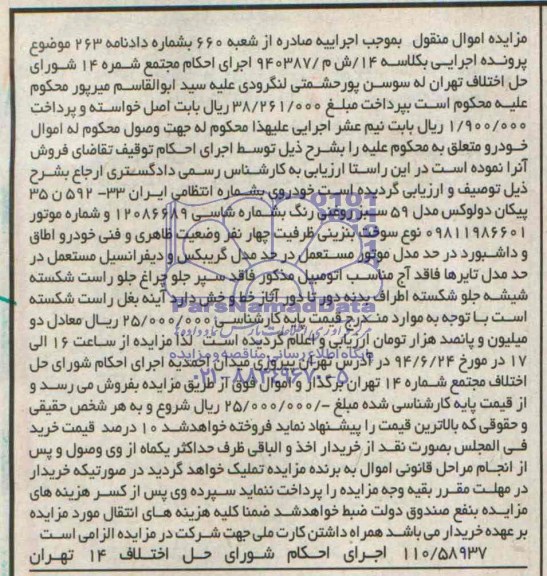 مزایده اموال منقول بموجب اجراییه صادره از شعبه ۶۶۰ بشماره دادنامه ۲۶۳ موضوع
پرونده اجرایی بکلاسه ۱۴/ش م /۹۴۰۳۸۷ اجرای احکام مجتمع شمره ۱۴ شورای
حل اختلاف تهران له سوسن پورحشمتی لنگرودی علیه سید ابوالقاسم میرپور محکوم
علیه محکوم است بپرداخت مبلغ ۳۸/۲۶۱/۰۰۰ ریال بابت اصل خواسته و پرداخت
۱/۹۰۰/۰۰۰ ریال بابت نیم عشر اجرایی علیهذا محکوم له جهت وصول محکوم له اموال
خودرو متعلق به محکوم علیه را بشرح ذیل توسط اجرای احکام توقیف تقاضای فروش
آنرا نموده است در این راستا ارزیابی به کارشناس رسمی دادگستری ارجاع بشرح
ذیل توصیف و ارزیابی گردیده است خودروی بشماره انتظامی ایران ۳۳- ۵۹۲ ن ۳۵
پیکان دولوکس مدل ۵۹ سبز روغنی رنگ بشماره شاسی ۱۲۰۸۶۶۸۹ و شماره موتور
۰۹۸۱۱۹۸۶۶۰۱ نوع سوخت بنزینی ظرفیت چهار نفر وضعیت ظاهری و فنی خودرو اطاق
و داشبورد در حد مدل موتور مستعمل در حد مدل گریبکس و دیفرانسیل مستعمل در
حد مدل تایرها فاقد آج مناسب اتومبیل مذکور فاقد سپر جلو چراغ جلو راست شکسته
شیشه جلو شکسته اطراف بدنه دور تا دور آثار خط و خش دارد آینه بغل راست شکسته
است با توجه به موارد مندرج قیمت پایه کارشناسی ۲۵/۰۰۰/۰۰۰ ریال معادل دو
میلیون و پانصد هزار تومان ارزیابی و اعلام گردیده است لذا مزایده از ساعت ۱۶ الی
۱۷ در مورخ ۹۴/۶/۲۴ در آدرس تهران پیروزی میدان احمدیه اجرای احکام شورای حل
اختلاف مجتمع شماره ۱۴ تهران برگذار و اموال فوق از طریق مزایده بفروش می رسد و
از قیمت پایه کارشناسی شده مبلغ -/۲۵/۰۰۰/۰۰۰ ریال شروع و به هر شخص حقیقی
و حقوقی که بالاترین قیمت را پیشنهاد نماید فروخته خواهدشد ۱۰ درصد قیمت خرید
فی المجلس بصورت نقد از خریدار اخذ و الباقی ظرف حداکثر یکماه از وی وصول و پس
از انجام مراحل قانونی اموال به برنده مزایده تملیک خواهد گردید در صورتیکه خریدار
در مهلت مقرر بقیه وجه مزایده را پرداخت ننماید سپرده وی پس از کسر هزینه های
مزایده بنفع صندوق دولت ضبط خواهدشد ضمنا کلیه هزینه های انتقال مورد مزایده
بر عهده خریدار می باشد همراه داشتن کارت ملی جهت شرکت در مزایده الزامی است
۱۱۰/۵۸۹۳۷ اجرای احکام شورای حل اختلاف ۱۴ تهران
ParsNamadData
پایگاه اطلاع رسانی مناقصه و مزایده